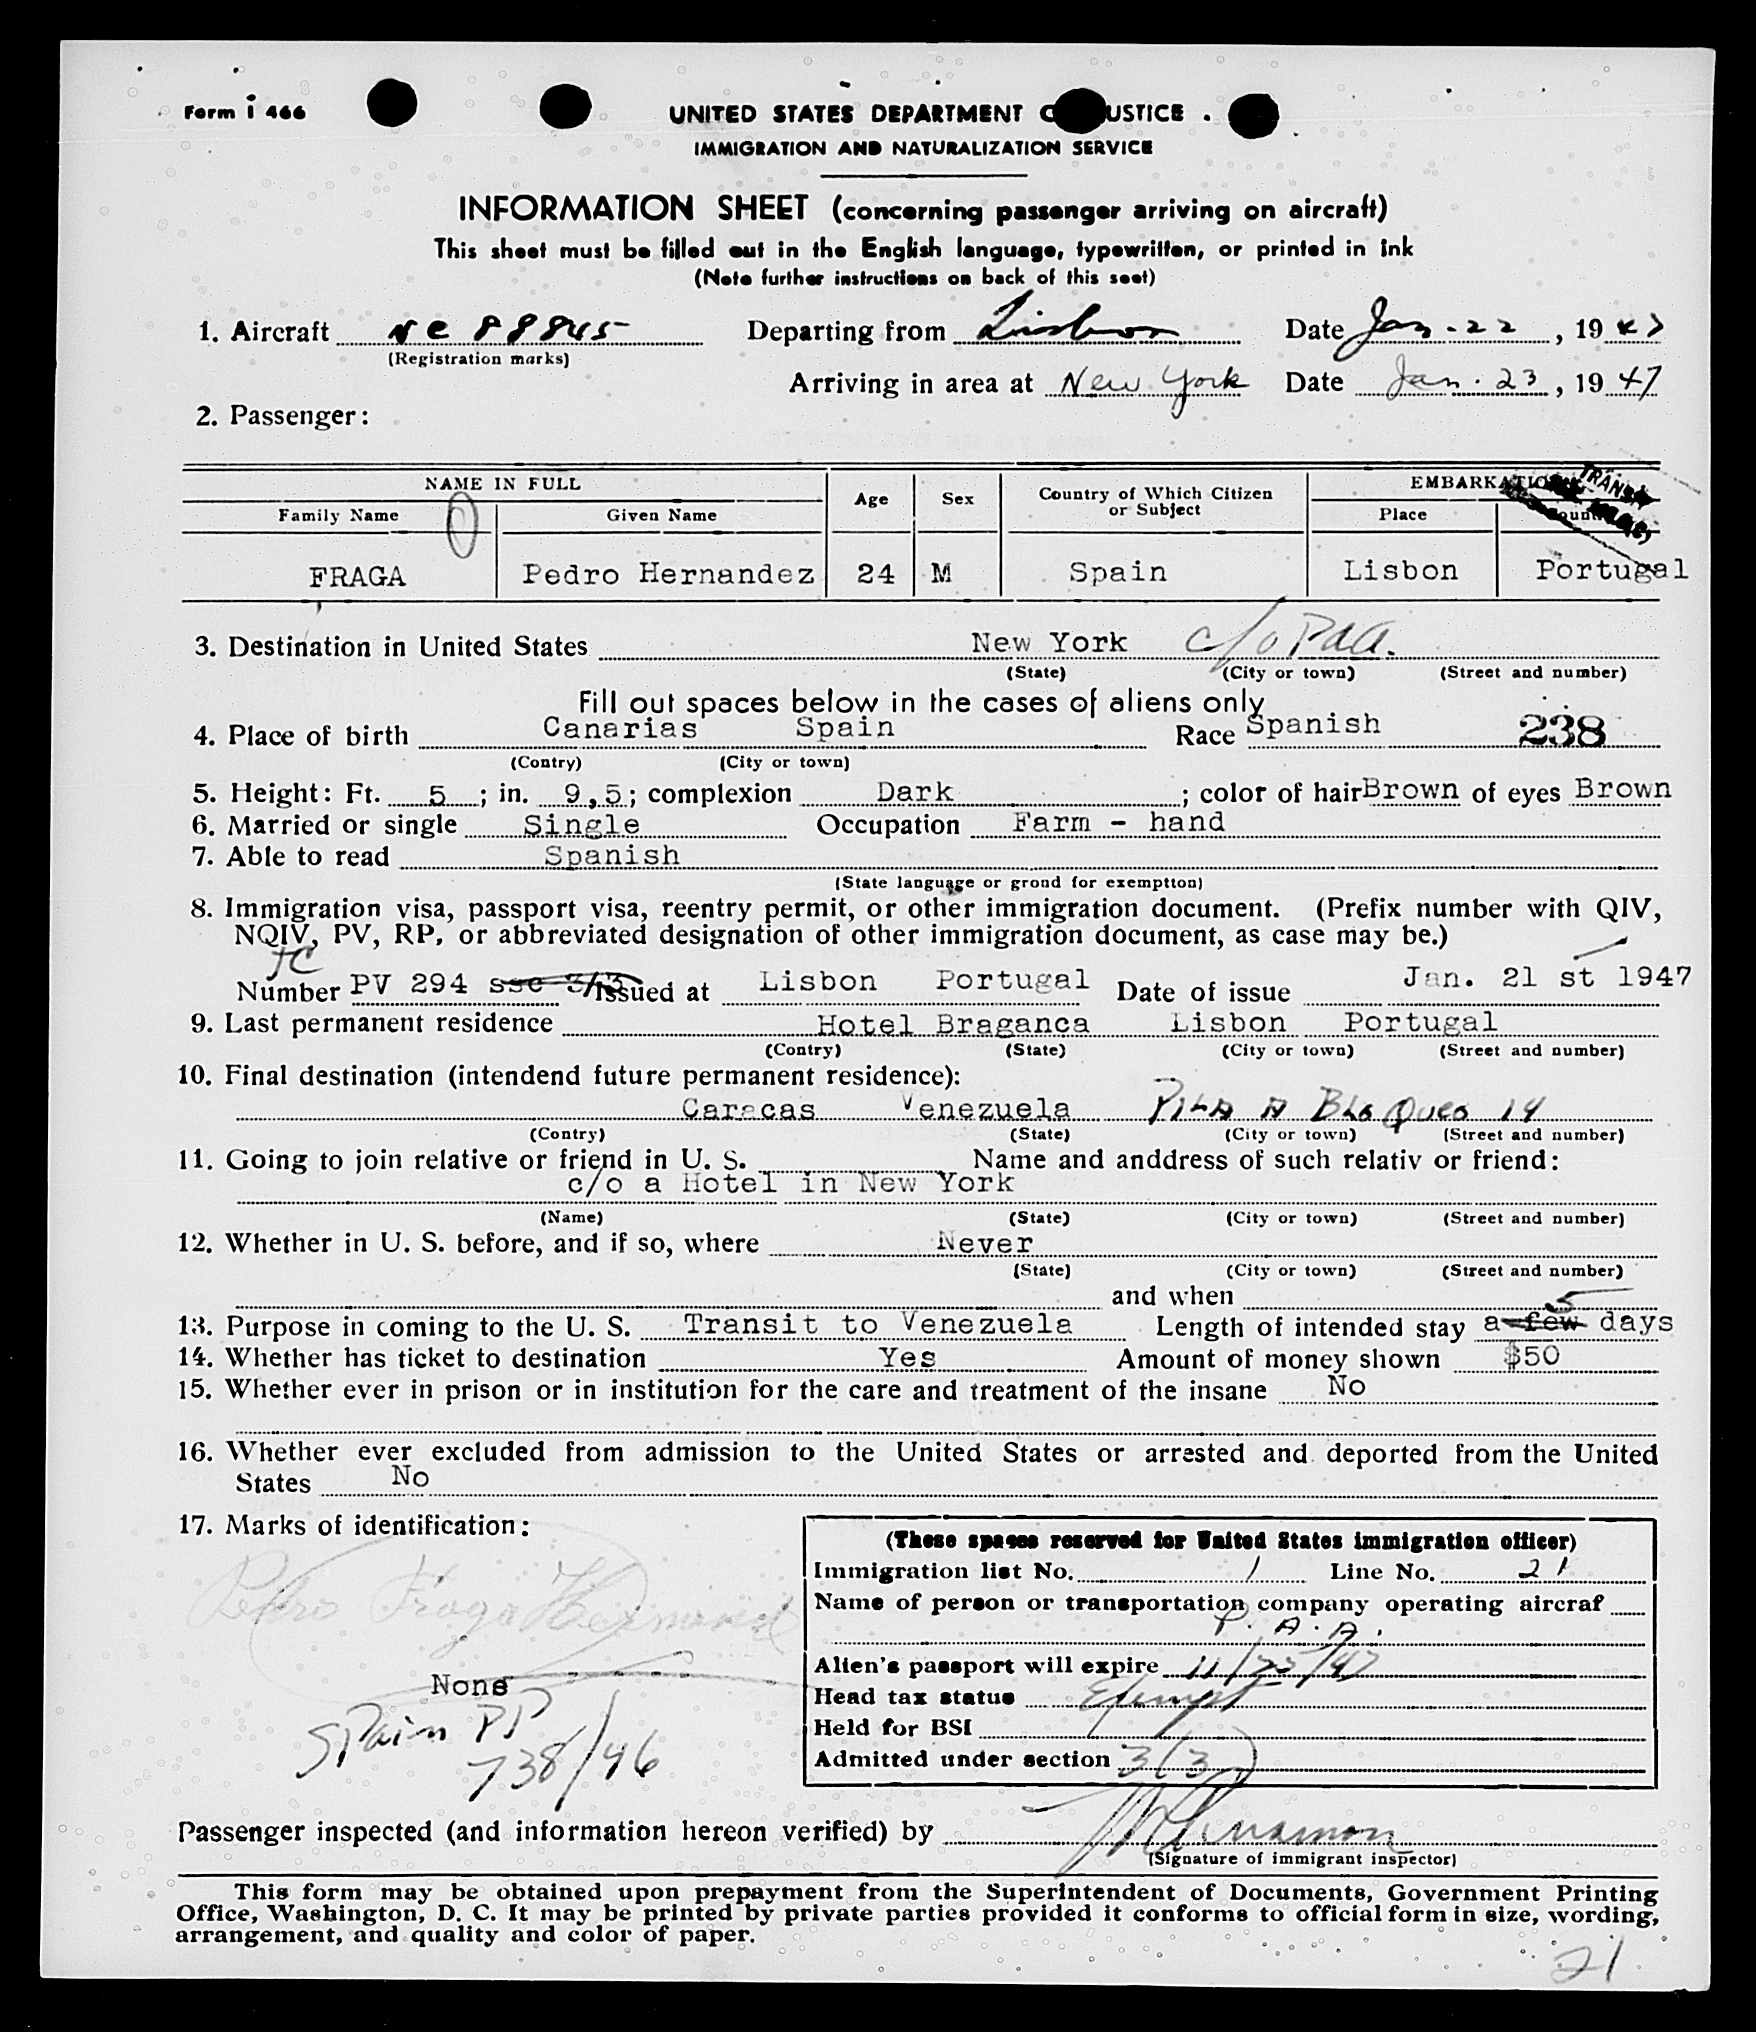 Form I 466
UNITED STATES DEPARTMENT O USTICE .
IMMIGRATION AND NATURALIZATION SERVICE
INFORMATION SHEET (concerning passenger arriving on aircraft)
This sheet must be filled out in the English language, typewritten, or printed in ink
(Note further instructions on back of this seet)
1. Aircraft NC 88845 Departing from Lisbon Date Jan - 22, 1947
(Registration marks)
Arriving in area at New York Date Jan. 23, 19 47
2. Passenger:
NAME IN FULL Age Sex Country of Which Citizen or Subject EMBARKATION
TRANSIT
Family Name Given Name Place Country
FRAGA Pedro Hernandez 24 M Spain Lisbon Portugal
3. Destination in United States New York c/o PAA.
(State) (City or town) (Street and number)
Fill out spaces below in the cases of aliens only
4. Place of birth Canarias Spain Race Spanish 238
(Contry) (City or town)
5. Height: Ft. 5; in. 9,5; complexion Dark; color of hair Brown of eyes Brown
6. Married or single Single Occupation Farm - hand
7. Able to read Spanish
(State language or grond for exemptton)
8. Immigration visa, passport visa, reentry permit, or other immigration document. (Prefix number with QIV,
NQIV, PV, RP, or abbreviated designation of other immigration document, as case may be.)
TC
Number PV 294 ssc 3/3 Issued at Lisbon Portugal Date of issue Jan. 21 st 1947
9. Last permanent residence Hotel Braganca Lisbon Portugal
(Contry) (State) (City or town) (Street and number)
10. Final destination (intendend future permanent residence):
Caracas Venezuela PILA A BLoQueo 14
(Contry) (State) (City or town) (Street and number)
11. Going to join relative or friend in U. S. Name and anddress of such relativ or friend:
c/o a Hotel in New York
(Name) (State) (City or town) (Street and number)
12. Whether in U. S. before, and if so, where Never
(State) (City or town) (Street and number)
and when
13. Purpose in coming to the U. S. Transit to Venezuela Length of intended stay a few 5 days
14. Whether has ticket to destination Yes Amount of money shown $50
15. Whether ever in prison or in institution for the care and treatment of the insane No
16. Whether ever excluded from admission to the United States or arrested and deported from the United
States No
17. Marks of identification:
Pedro Fraga Hernandez
None
Spain PP
738/46
(These spaces reserved for United States immigration officer)
Immigration list No. 1 Line No. 21
Name of person or transportation company operating aircraf
P.A.A.
Alien's passport will expire 11/25/47
Head tax status Exempt
Held for BSI
Admitted under section 3(3)
Passenger inspected (and information hereon verified) by
(Signature of immigrant inspector)
This form may be obtained upon prepayment from the Superintendent of Documents, Government Printing
Office, Washington, D. C. It may be printed by private parties provided it conforms to official form in size, wording,
arrangement, and quality and color of paper.
21